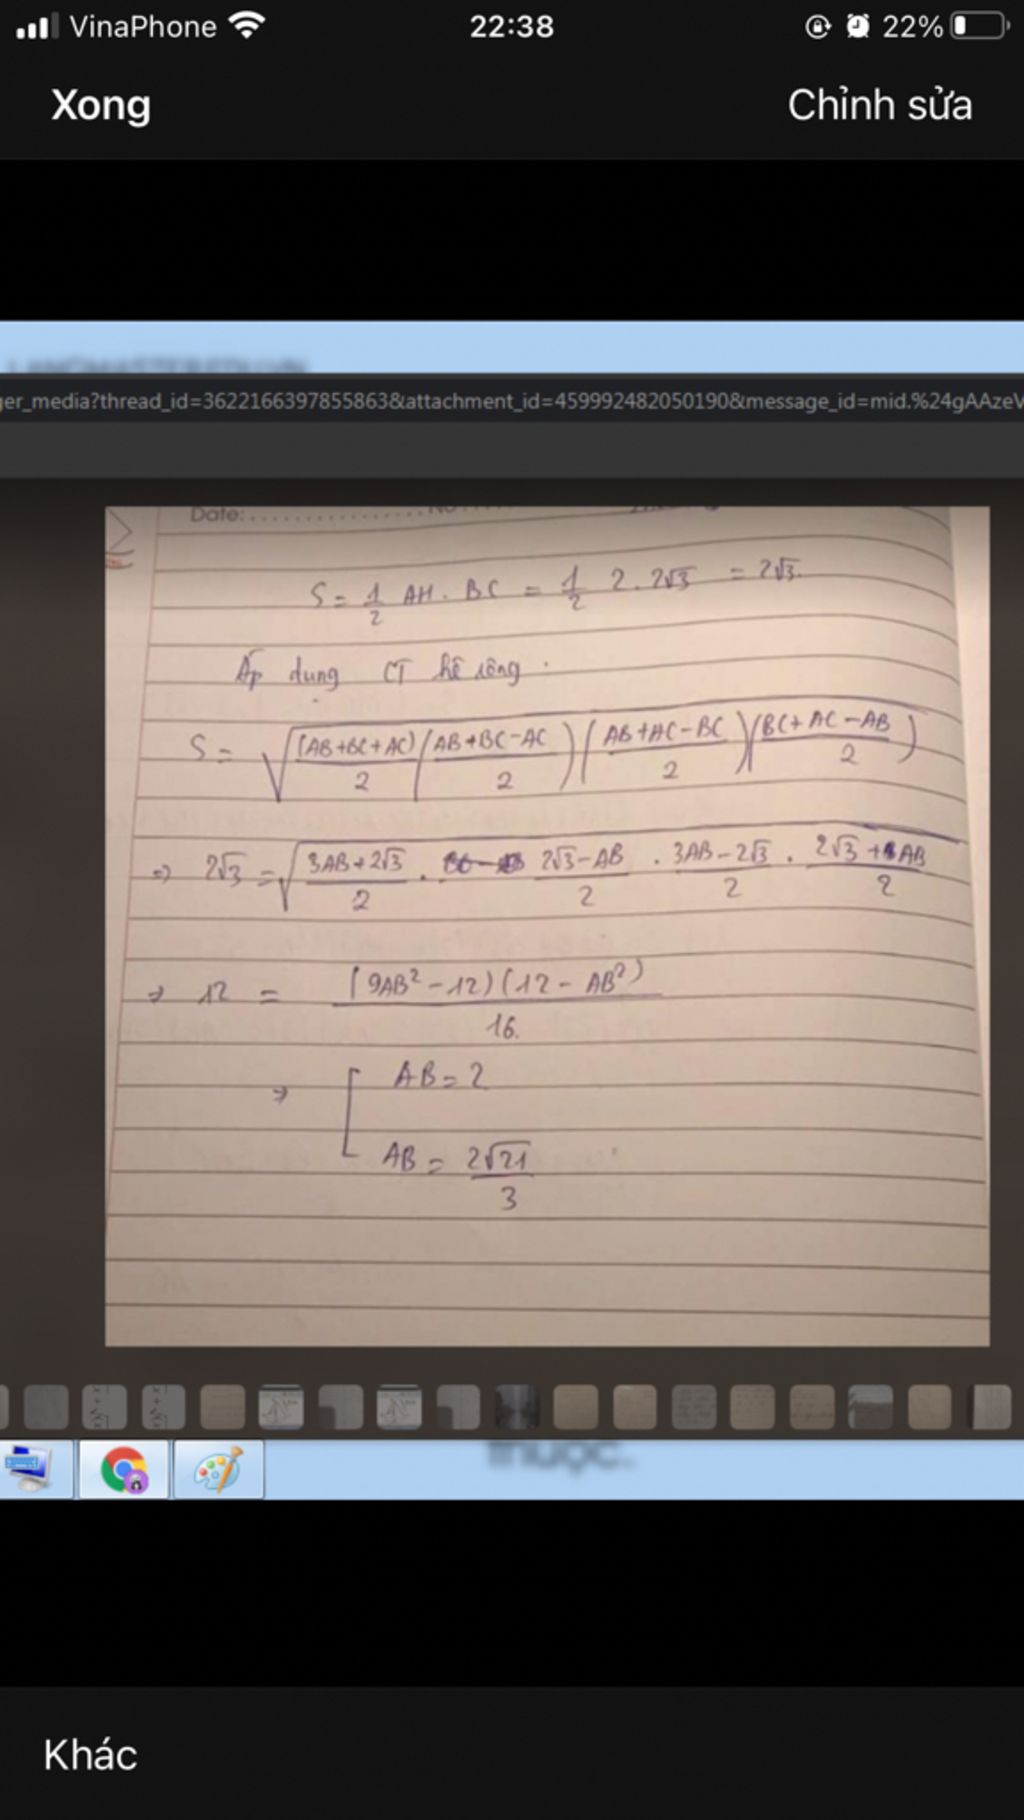 VinaPhone 22:38 22%
Xong Chỉnh sửa
ger_media?thread_id=3622166397855863&attachment_id=459992482050190&message_id=mid.%24gAAzeV
Date:
S = 1/2 AH . BC = 1/2 2 . 2√3 = 2√3.
Áp dụng CT hê rông .
S = √((AB+BC+AC)/2 ((AB+BC-AC)/2) ((AB+AC-BC)/2) ((BC+AC-AB)/2))
=> 2√3 = √((3AB+2√3)/2 . (2√3-AB)/2 . (3AB-2√3)/2 . (2√3+AB)/2)
=> 12 = (9AB²-12)(12-AB²)/16.
=> [ AB = 2
AB = 2√21/3
thuộc.
Khác